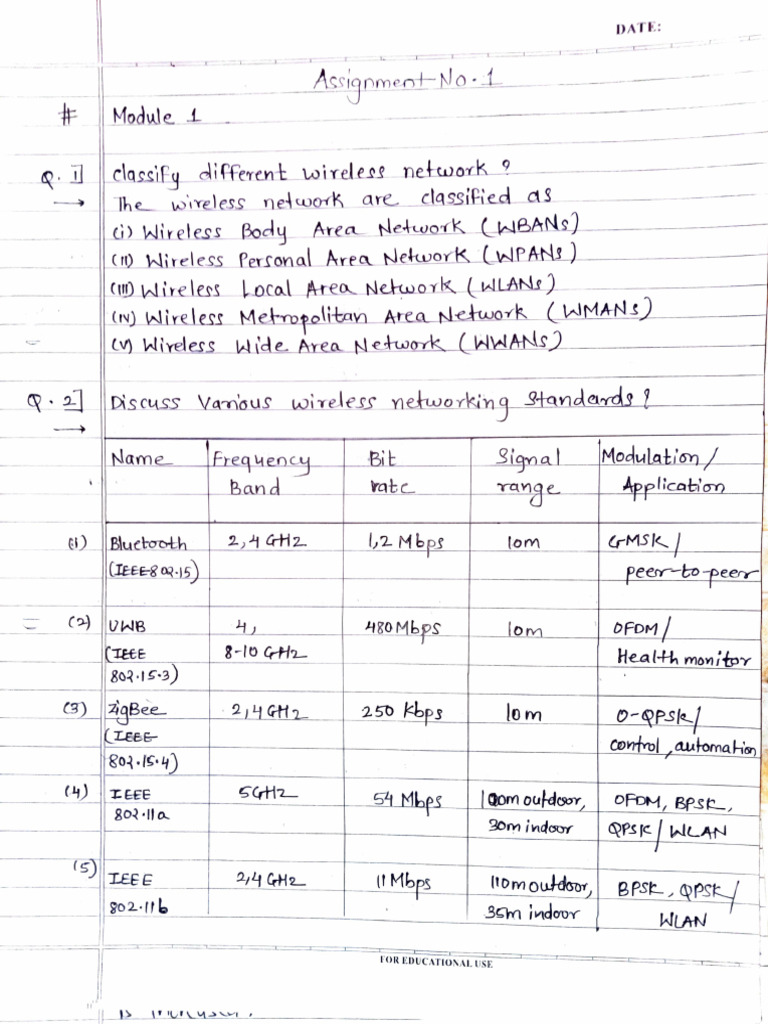 DATE:
Assignment No. 1
# Module 1
Q. 1] Classify different wireless network?
→ The wireless network are classified as
(i) Wireless Body Area Network (WBANs)
(II) Wireless Personal Area Network (WPANs)
(III) Wireless Local Area Network (WLANs)
(IV) Wireless Metropolitan Area Network (WMANs)
(V) Wireless Wide Area Network (WWANs)
Q. 2] Discuss Various wireless networking Standards?
→
Name Frequency Bit Signal Modulation/
Band rate range Application
(1) Bluetooth 2,4 GHz 1,2 Mbps 10m GMSK/
(IEEE 802.15) peer-to-peer
(2) UWB 4, 480 Mbps 10m OFDM/
(IEEE 8-10 GHz Health monitor
802.15.3)
(3) ZigBee 2,4 GHz 250 Kbps 10m O-QPSK/
(IEEE control, automation
802.15.4)
(4) IEEE 5GHz 54 Mbps 100m outdoor, OFDM, BPSK,
802.11a 30m indoor QPSK/WLAN
(5) IEEE 2,4 GHz 11 Mbps 110m outdoor, BPSK, QPSK/
802.11b 35m indoor WLAN
FOR EDUCATIONAL USE